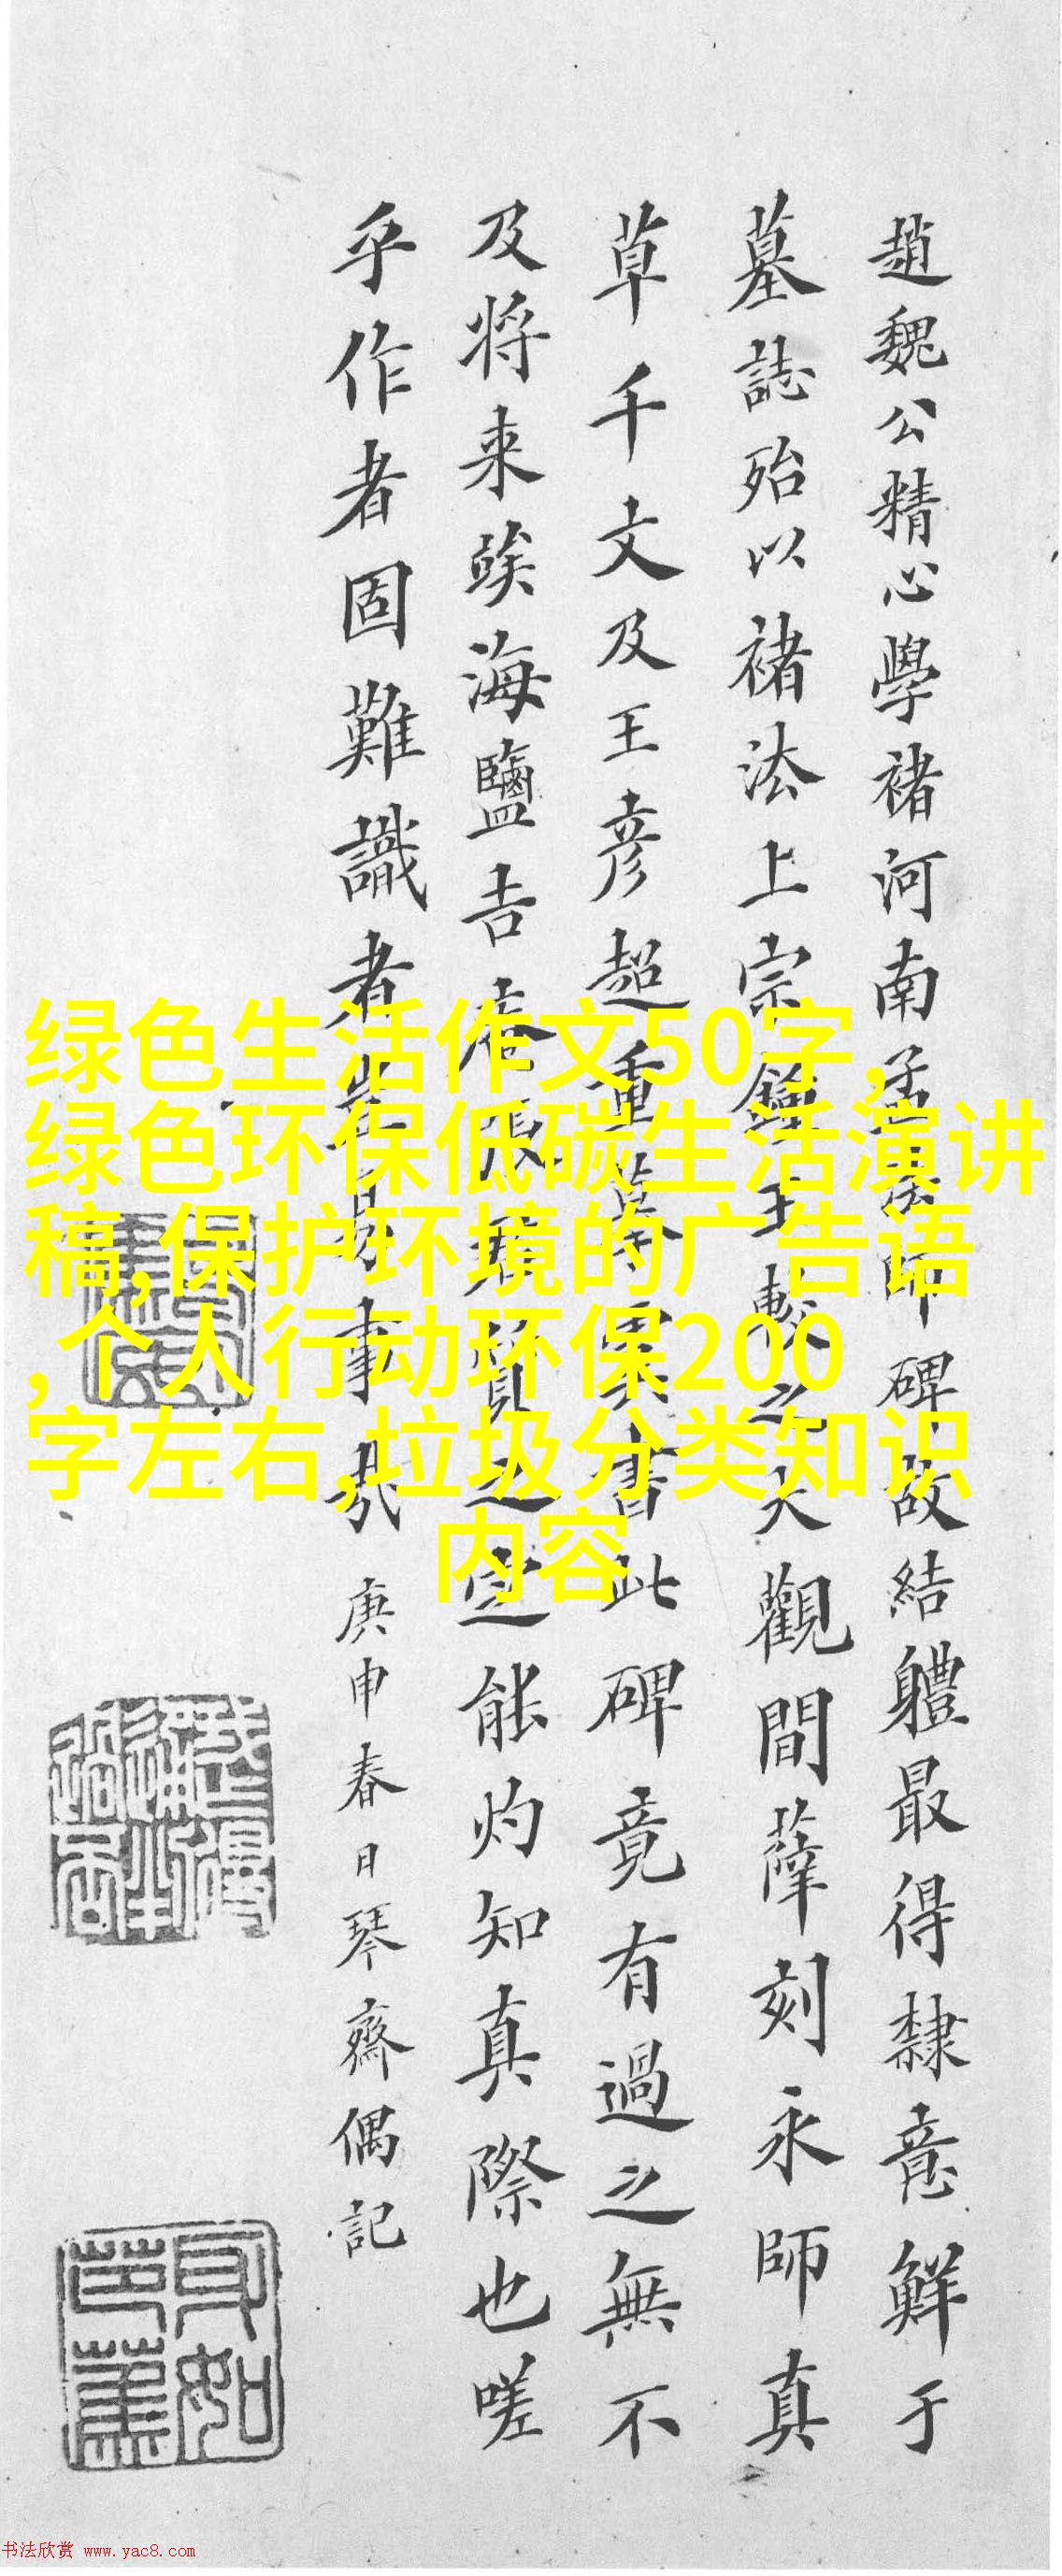 趙魏公精心學褚河南孟法師碑故結軆最得隸意鮮于
墓誌殆以褚法上宗鍾王較之大觀間薛刻永師真
草千文及王彦超重摹書此碑竟有過之無不
及将来
海鹽吉
張
質之
能灼知真際也嗟
乎作者固難識者豈易事哉
庚申春日琴齋偶記
绿色生活作文50字,
绿色环保低碳生活演讲
稿,保护环境的广告语
,个人行动环保200
字左右,垃圾分类知识
内容
书法欣赏 www.yac8.com